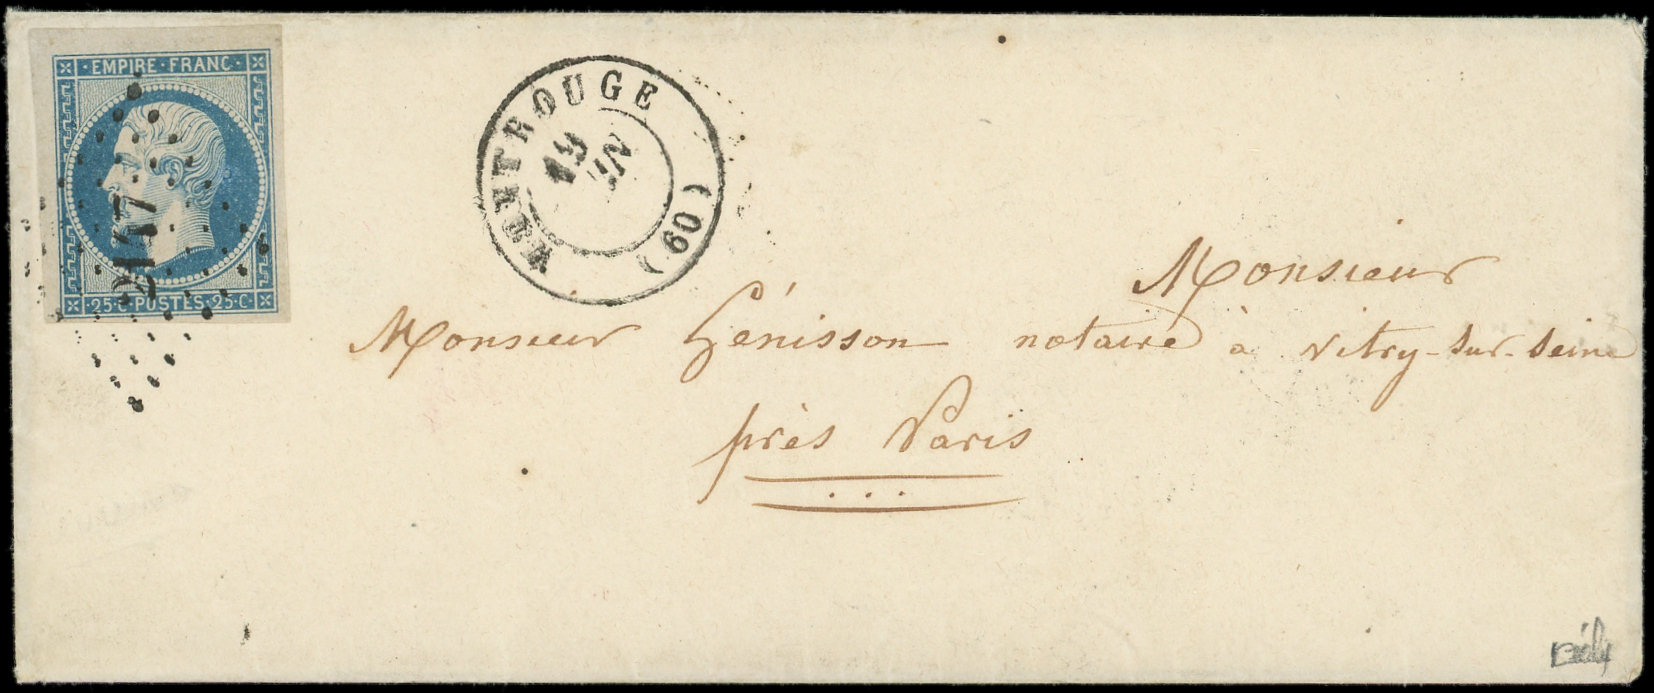 · EMPIRE · FRANC ·
· 25 · C · POSTES · 25 · C ·
2147
MONTROUGE
19
JIN
(60)
Monsieur
Monsieur Hénisson notaire à Vitry-sur-Seine
près Paris